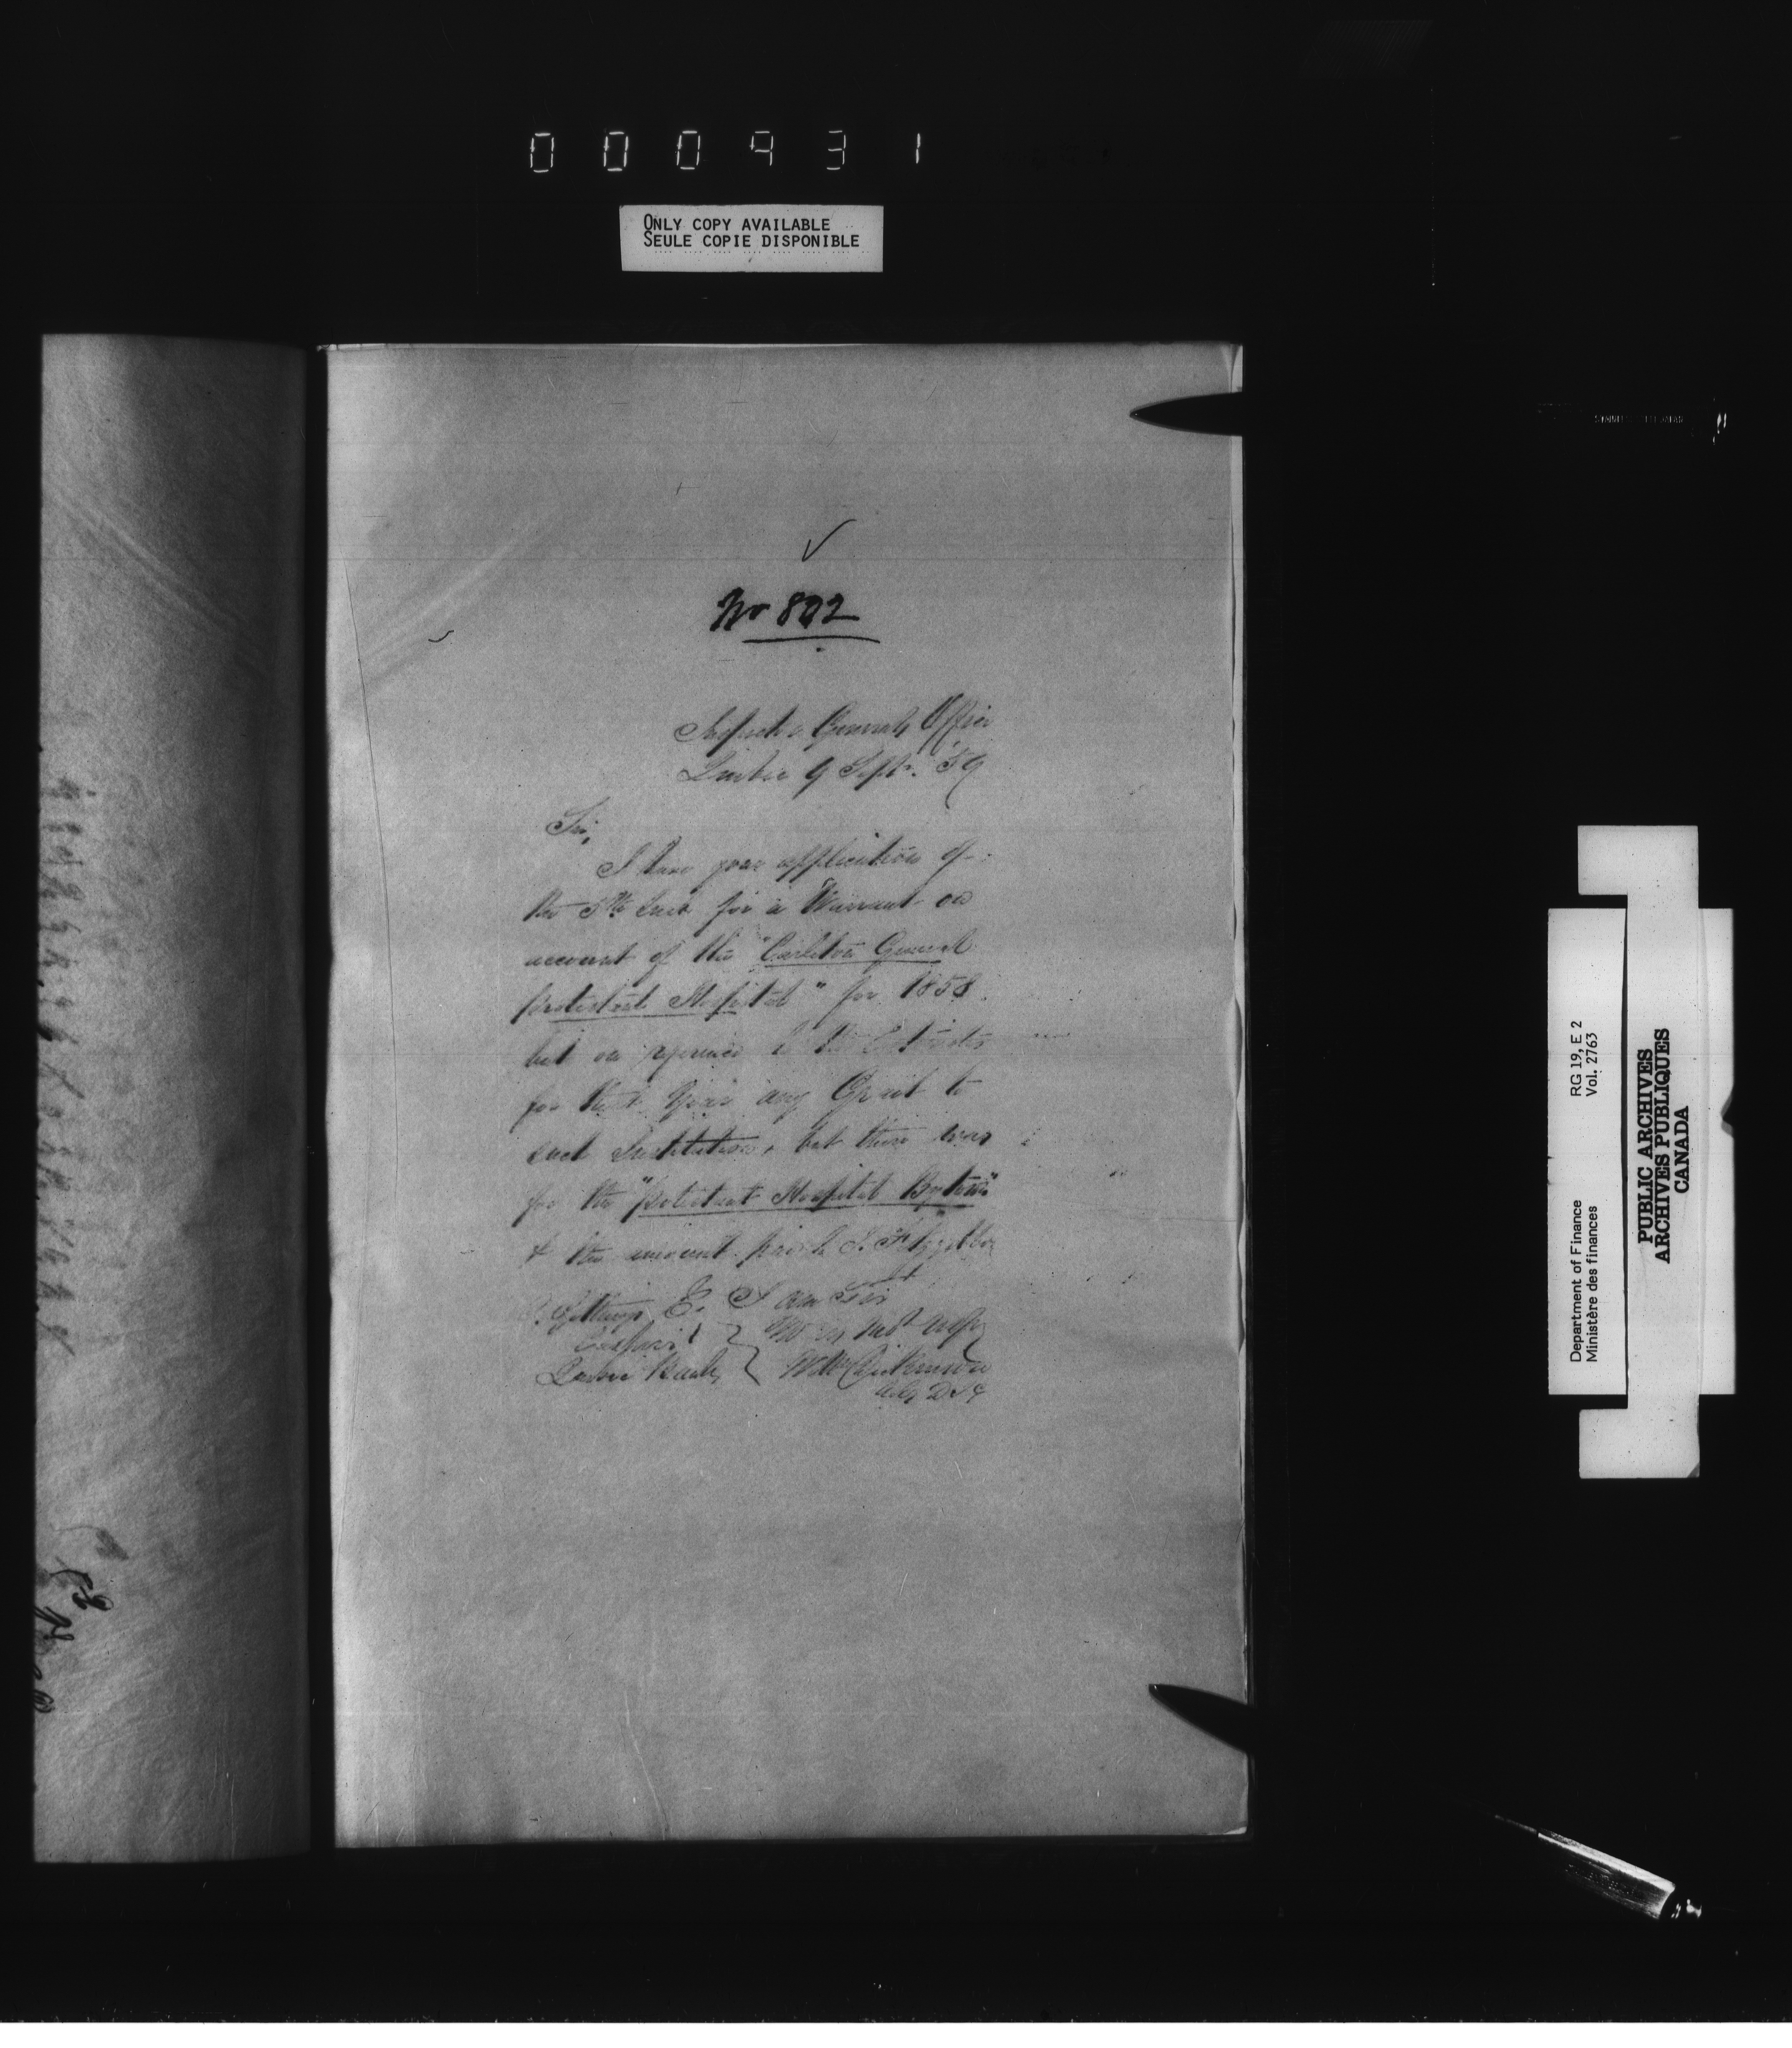 000931
ONLY COPY AVAILABLE
SEULE COPIE DISPONIBLE
No 802
Inspector Generals Office
Quebec 9 Septr. '59
Sir,
I have your application of
the 5th for a Warrant on
account of the "Carleton General
Protestant Hospital" for 1858
but on reference to the Estimates
for that Year any Grant to
such Institution, but there was
for the "Protestant Hospital Bytown"
& the amount paid to
E. I am Sir
Cashier
Quebec Bank
Wm Dickinson
Actg D I G
RG 19, E 2
Vol. 2763
Department of Finance
Ministère des finances
PUBLIC ARCHIVES
ARCHIVES PUBLIQUES
CANADA